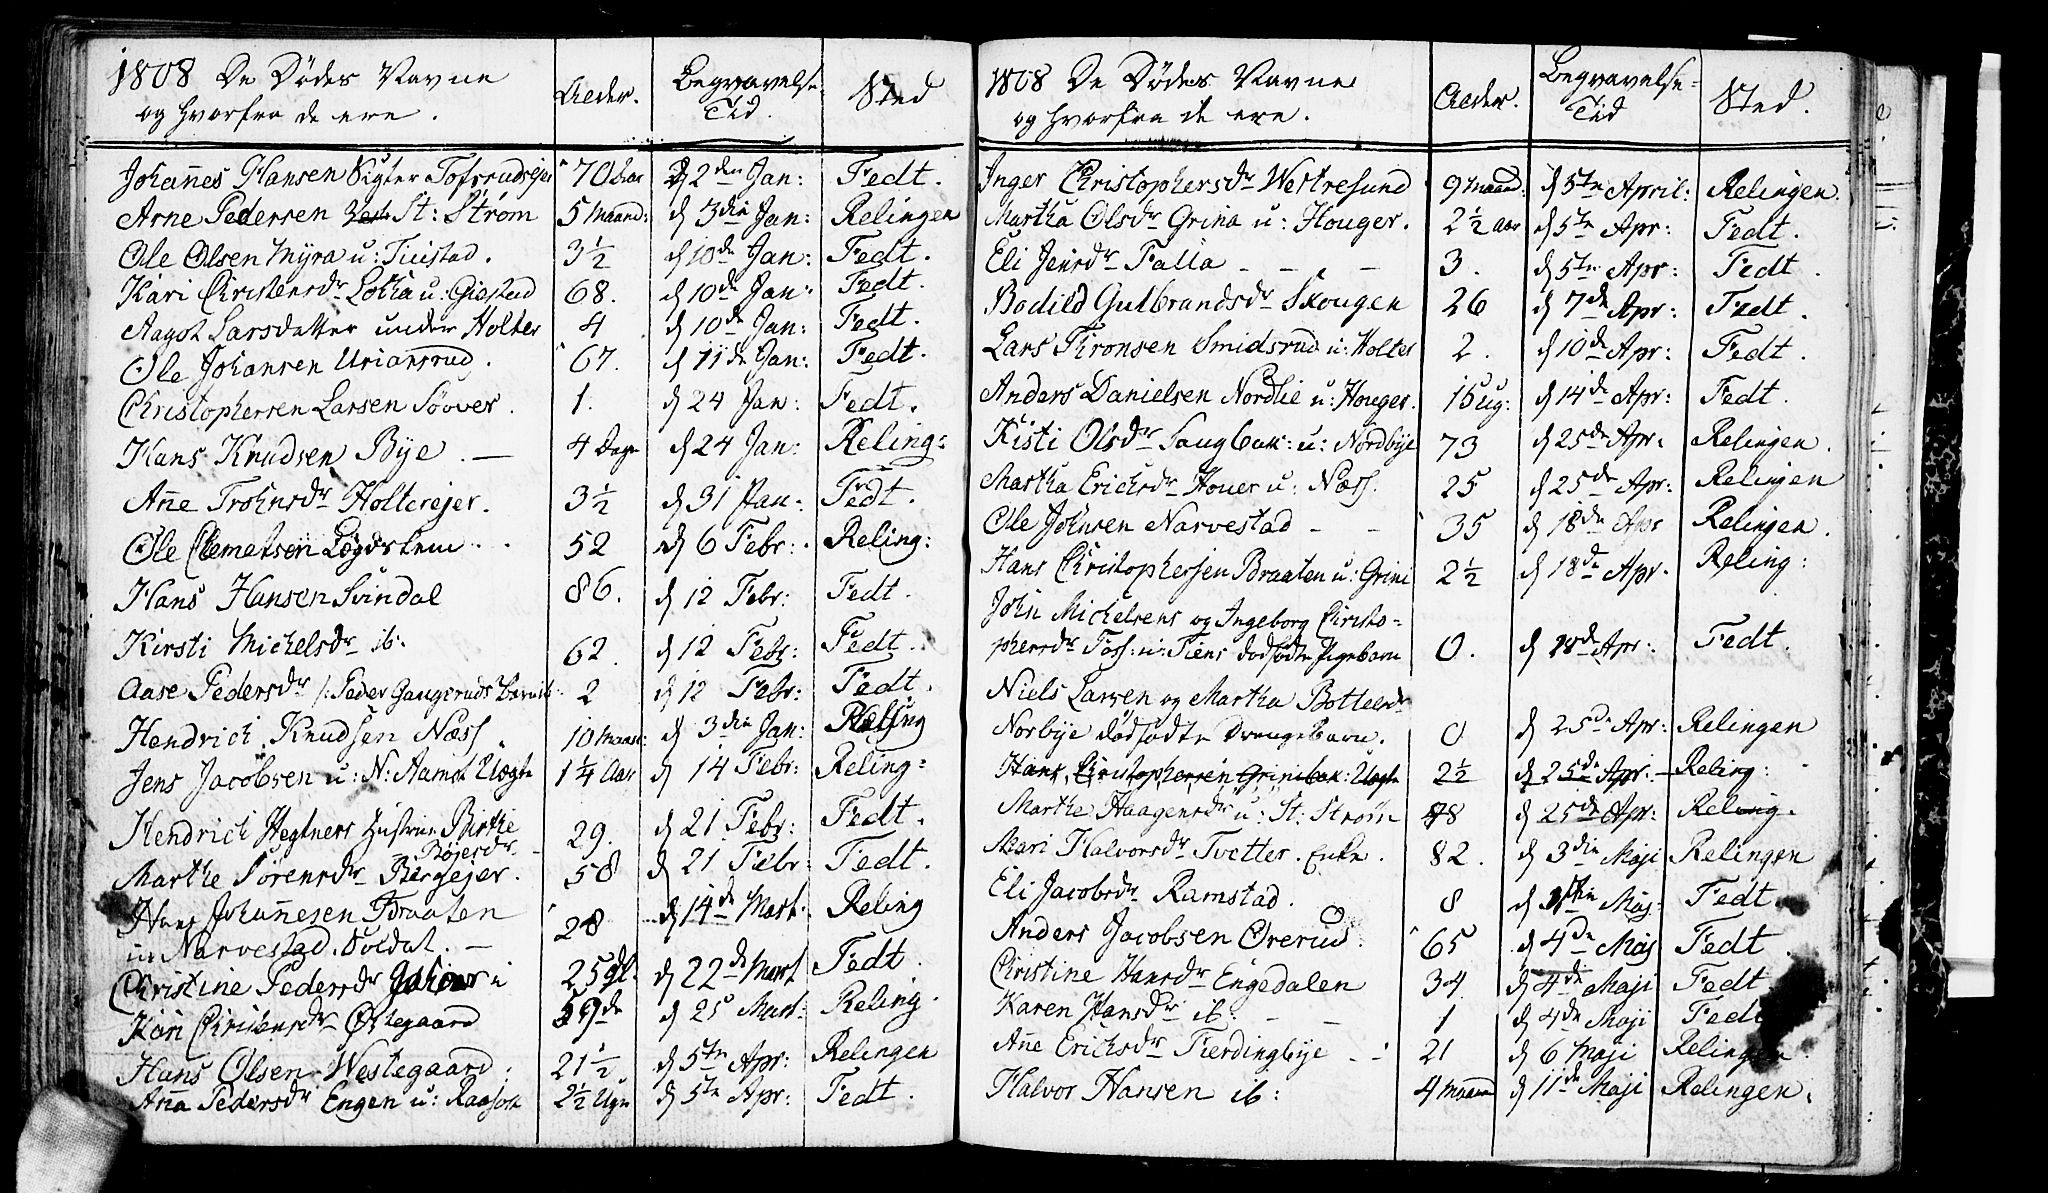 1808 De Dødes Navne
og hvorfra de ere.
Alder.
Begravelse-
Tid.
Sted
Johañes Hansen Tofsrudejer 70 Aar d 2den Jan: Fedt.
Arne Pedersen St: Strøm 5 Maand: d 3die Jan: Relingen
Ole Olsen Myra u: Tiistad. 3½ d 10de Jan: Fedt.
Kari Christensdr Lokka u: Gistad 68. d 10de Jan: Fedt.
Aagot Larsdatter under Holter 4 d 10de Jan: Fedt.
Ole Johansen Uriansrud. 67. d 11de Jan: Fedt.
Christophersen Larsen Søver. 1. d 24 Jan: Fedt.
Hans Knudsen Bye. — 4 Dage d 24 Jan: Reling:
Añe Trohnsdr Holterejer. 3½ d 31 Jan: Fedt.
Ole Clemetsen Løgdstem 52 d 6 Febr: Reling:
Hans Hansen Svindal 86. d 12 Febr: Fedt.
Kirsti Michelsdr ib. 62. d 12 Febr: Fedt.
Aase Pedersdr /: Peder Gaugeruds 2 d 12 Febr: Fedt.
Hendrich Knudsen Næss 10 Maan: d 3die Jan: Reling
Jens Jacobsen u: N: Aamot Uægte 1¼ Aar d 14 Febr: Reling:
Hendrich Hegtners Hustrue Birthe
Bøjesdr. — 29. d 21 Febr: Fedt.
Marthe Sørensdr Bergejer. 58 d 21 Febr: Fedt.
Hans Johañesen Braaten
u: Narvestad. Soldat. — 28 d 14de Mart: Reling
Christine Pedersdr 25 d 22de Mart Fedt.
Kari Christensdr Østegaard d 25 Mart: Reling.
Hans Olsen Westegaard. 21½ d 5te Apr: Relingen
Aña Pedersdr Engen u: Raasok 2½ Ugr d 5te Apr: Fedt.
1808 De Dødes Navne
og hvorfra de ere.
Alder.
Begravelse-
Tid
Sted.
Inger Christophersdr Westresund 9 Maand: d 5te April: Relingen.
Martha Olsdr Grina u: Houger. 2½ Aar d 5te Apr: Fedt.
Eli Jensdr Falla — — — 3. d 5te Apr: Fedt.
Bodild Gulbrandsdr Skougen 26 d 7de Apr: Fedt.
Lars Thronsen Smidsrud u: Holter 2. d 10de Apr: Fedt.
Anders Danielsen Nordlie u: Houger. 16 ug: d 14de Apr: Fedt.
Kisti Olsdr Saugbak: u: Nordbye 73 d 25de Apr: Relingen.
Martha Erichsdr Houer u: Næss. 25 d 25de Apr: Relingen
Ole Johnsen Narvestad — — 35 d 18de Apr Relingen.
Hans Christophersen Braaten u: Grini 2½ d 18de Apr. Reling:
John Michelsens og Ingeborg Christo-
phersdr Foss: u: Tiens dødfødte Pigebarn 0. d 18de Apr: Fedt.
Niels Larsen og Martha Bottelsdr
Norbye dødfødte Drengebarn. 0 d 25de Apr: Relingen
Hans Christophersen Grinibak: Uægte 2½ d 25de Apr: — Reling:
Marthe Haagensdr u: St: Strøm 48 d 25de Apr: Reling.
Mari Halvorsdr Tvetter. Enke. 82. d 3die Maji Relingen
Eli Jacobsdr Ramstad. 8 d Maj: Fedt.
Anders Jacobsen Ørerud. 65 d 4de Maj Fedt.
Christine Hansdr Engedalen 34 d 4de Maji Fedt.
Karen Hansdr ib: — — 1 d 4de Maji Fedt
Añe Erichsdr Fierdingbye 21 d 6 Maji Relingen.
Halvor Hansen ib: 4 Maan d 11de Maji Relingen.